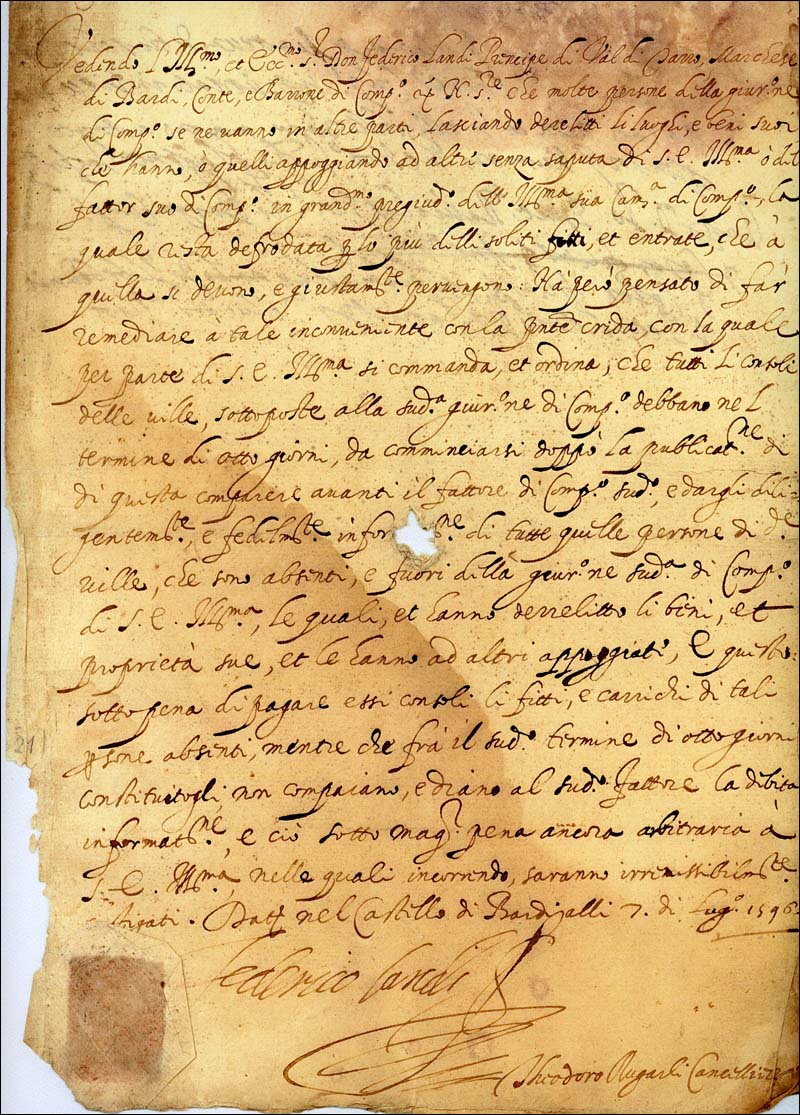 Vedendo l'Ill.mo, et Ecc.mo S.r Don Federico Landi Principe di Val di Tarro, Marchese
di Bardi, Conte, e Barrone di Comp.o &c N. S.re che molte persone della giur.ne
di Comp.o se ne vanno in altre parti, lasciando derelitti li luoghi, e beni suoi
che hanno, ò quelli appoggiando ad altri senza saputa di S. E. Ill.ma ò del
fattor suo di Comp.o in grand.mo pregiud.o dell'Ill.ma sua Cam.a di Comp.o, la
quale resta defrodata p lo più delli soliti fitti, et entrate, che à
quella si devono, e giustam.te pervengono: Hà però pensato di far
remediare à tale inconveniente con la pnte crida, con la quale
per parte di S. E. Ill.ma si commanda, et ordina, che tutti li consoli
delle ville, sottoposte alla sud.a giur.ne di Comp.o debbano nel
termine di otto giorni, da comminciarsi doppò la publicat.ne di
di questa comparere avanti il fattore di Comp.o sud.o, e dargli dili-
gentem.te, e fedelm.te infor ne di tutte quelle persone di d.e
ville, che sono absenti, e fuori della giur.ne sud.a di Comp.o
di S. E. Ill.ma, le quali, et hanno derrelitto li beni, et
proprietà sue, et le hanno ad altri appoggiati, E questo
sotto pena di pagare essi consoli li fitti, e carrichi di tali
psone absenti, mentre che frà il sud.o termine di otto giorni
constituitogli, non compaiano, e diano al sud.o fattore la debita
informat.ne, e ciò sotto mag.r pena ancora arbitraria à
S. E. Ill.ma, nelle quali incorrendo, saranno irremissibilm.te
stigati. Dat. nel Castello di Bardi alli 7. di Lug.o 1596
Federico Landi
Theodoro Rugarli Cancelliere